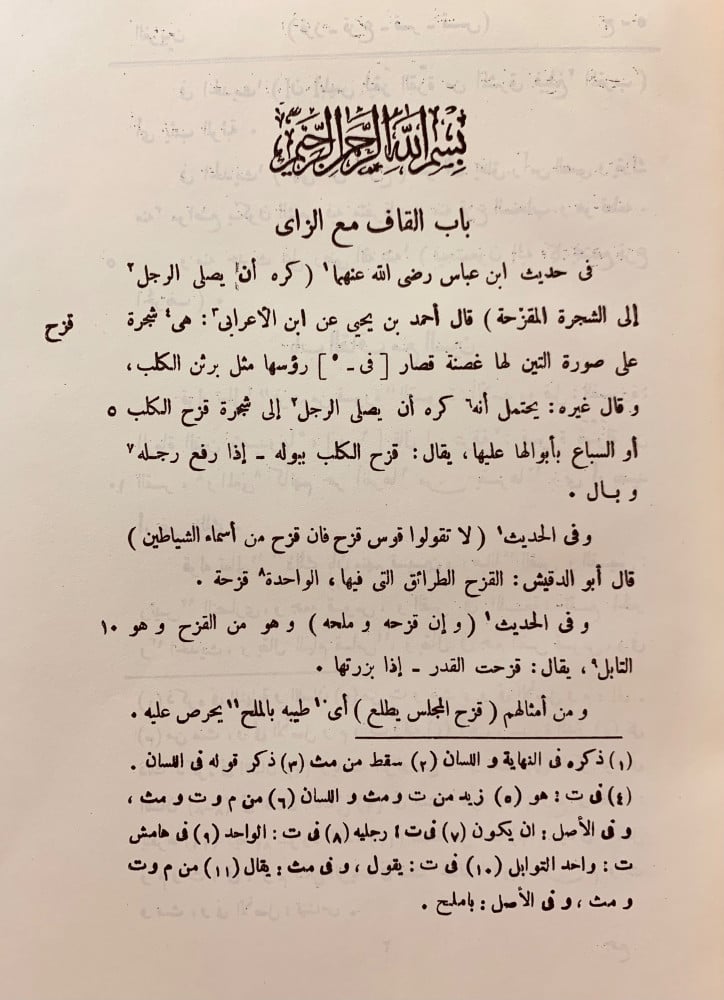 بسم الله الرحمن الرحيم
باب القاف مع الزاى
فى حديث ابن عباس رضى الله عنهما ١ ( كره أن يصلى الرجل ٢
إلى الشجرة المقزّحة ) قال أحمد بن يحيى عن ابن الأعرابى ٣ : هى ٤ شجرة
قزح
على صورة التين لها غصنة قصار [ فى ـ ٥ ] رؤسها مثل برثن الكلب ،
و قال غيره : يحتمل أنه ٦ كره أن يصلى الرجل ٢ إلى شجرة قزح الكلب ٥
أو السباع بأبوالها عليها ، يقال : قزح الكلب ببوله ـ إذا رفع رجله ٧
و بال .
و فى الحديث ١ ( لا تقولوا قوس قزح فان قزح من أسماء الشياطين )
قال أبو الدقيش : القزح الطرائق التى فيها ، الواحدة ٨ قزحة .
و فى الحديث ١ ( و إن قزحه و ملحه ) و هو من القزح و هو ١٠
التابل ٩ ، يقال : قزحت القدر ـ إذا بزرتها .
و من أمثالهم ( قزح المجلس يطلع ) أى ١٠ طيبه بالملح ١١ يحرص عليه .
(١) ذكره فى النهاية و اللسان (٢) سقط من مث (٣) ذكر قوله فى اللسان .
(٤) فى ت : هو (٥) زيد من ت و مث و اللسان (٦) من م و ت و مث ،
و فى الأصل : ان يكون (٧) فى ت : رجليه (٨) فى ت : الواحد (٩) فى هامش
ت : واحد التوابل (١٠) فى ت : يقول ، و فى مث : يقال (١١) من م و ت
و مث ، و فى الأصل : باملح .